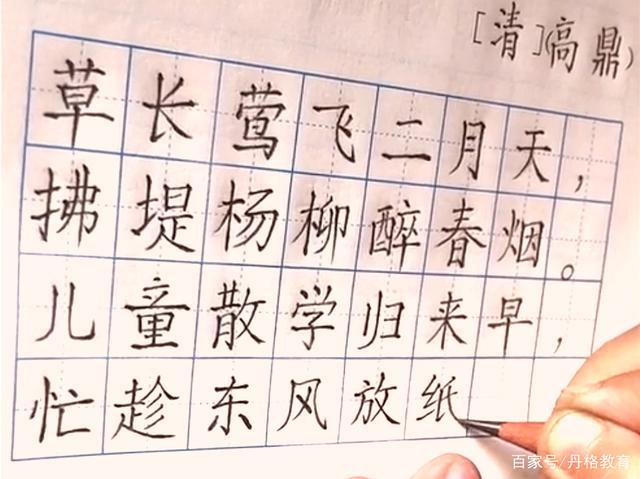 [清](高鼎)
草长莺飞二月天，
拂堤杨柳醉春烟。
儿童散学归来早，
忙趁东风放纸
百家号/丹格教育